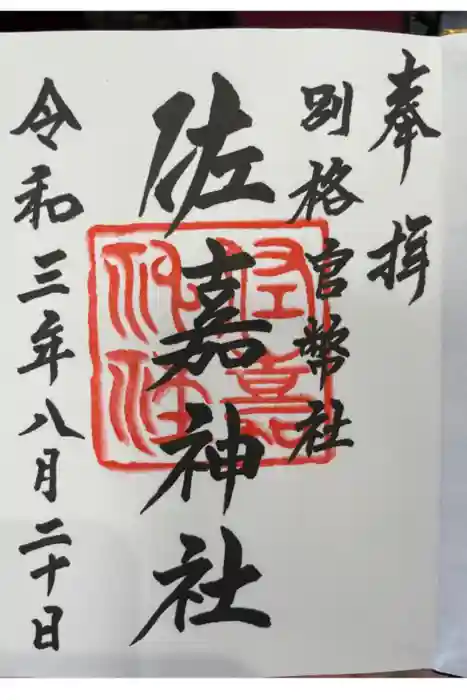 奉拝
別格官幣社
佐嘉神社
佐嘉神社
令和三年八月二十日